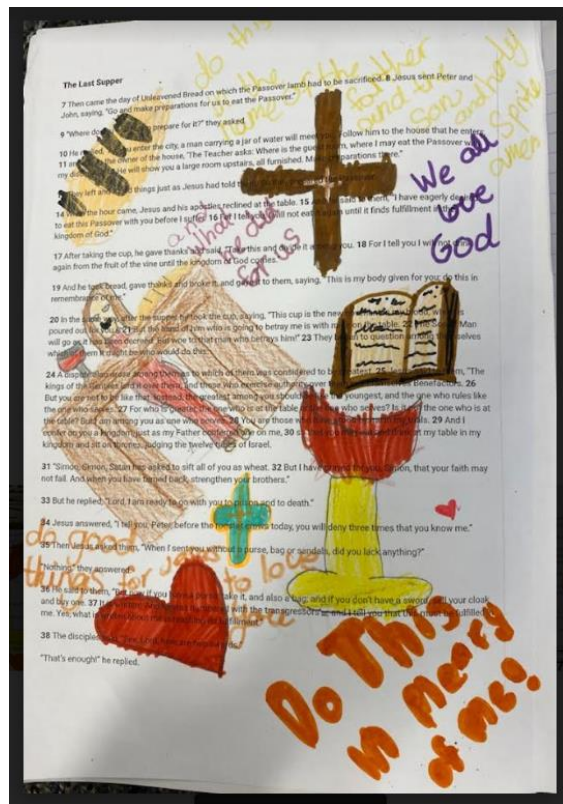 The Last Supper
7 Then came the day of Unleavened Bread on which the Passover lamb had to be sacrificed. 8 Jesus sent Peter and
John, saying, "Go and make preparations for us to eat the Passover."
9 "Where do prepare for it?" they asked.
10 He enter the city, a man carrying a jar of water will meet Follow him to the house that he enters,
11 and of the house, 'The Teacher asks: Where is the guest room, where I may eat the Passover with
He will show you a large room upstairs, all furnished. Make preparations there."
They left and things just as Jesus had told
14 When the hour came, Jesus and his apostles reclined at the table. 15 said to them, "I have eagerly
to eat this Passover with you before I suffer. 16 For I tell you, I will not eat until it finds fulfillment in the
kingdom of God."
17 After taking the cup, he gave thanks and said, "Take this and divide it you. 18 For I tell you I will not drink
again from the fruit of the vine until the kingdom of God comes."
19 And he took bread, gave thanks and broke it, and gave it to them, saying, "This is my body given for you; do this in
remembrance of me."
20 In the after the supper he took the cup, saying, "This cup is the new
poured out the hand of him who is going to betray me is with on the table. 22 The Man
will go decreed. But woe to that man who betrays him!" 23 They began to question among themselves
which of them it might be who would do this.
24 A dispute also arose among them as to which of them was considered to be greatest. 25 them, "The
kings of the Gentiles lord it over them; and those who exercise Benefactors. 26
But you are not to be like that. Instead, the greatest among you should youngest, and the one who rules like
the one who serves. 27 For who is greater, the one who is at the table who serves? Is it the one who is at
the table? But I am among you as one who serves. 28 You are those
confer on you a kingdom, just as my Father conferred one on me, 30 at my table in my
kingdom and sit on thrones, judging the twelve tribes of Israel.
31 "Simon, Simon, Satan has asked to sift all of you as wheat. 32 But I have prayed for you, Simon, that your faith may
not fail. And when you have turned back, strengthen your brothers."
33 But he replied, "Lord, I am ready to go with you to prison and to death."
34 Jesus answered, "I tell you, Peter, before the today, you will deny three times that you know me."
35 Then Jesus asked them, "When I sent you without a purse, bag or sandals, did you lack anything?"
"Nothing," they answered.
36 He said to them, "But now if you have a purse, take it, and also a bag; and if you don't have a sword, sell your cloak
and buy one. 37 It is written: with the transgressors'; and I tell you that this must be fulfilled
me. Yes, what is fulfillment."
38 The disciples
"That's enough!" he replied.
do this
We all
love
God
and
what
did
for us
do good
things for Jesus
to love
Do This
in Meary
of Me!